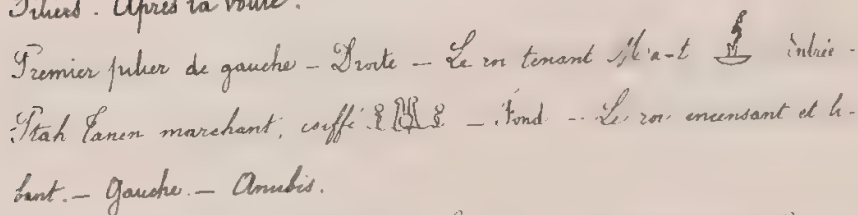 Piliers. Après la voûte.
Premier pilier de gauche – Droite – Le roi tenant Ma-t Entrée –
Ptah Tanen marchant, coiffé – Fond – Le roi encensant et li-
bant. – Gauche. – Anubis.